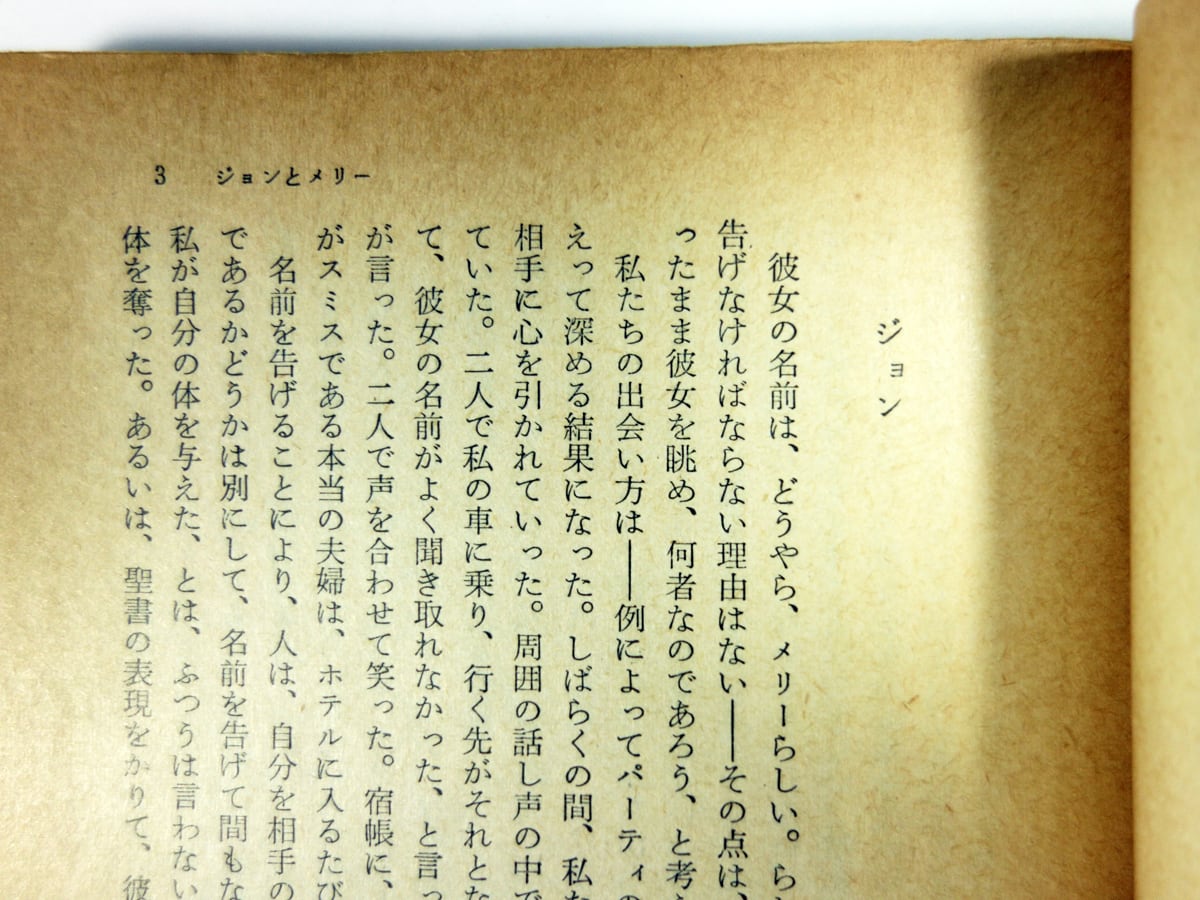 3 ジョンとメリー
ジョン
彼女の名前は、どうやら、メリーらしい。ら
告げなければならない理由はない――その点は、
ったまま彼女を眺め、何者なのであろう、と考え
私たちの出会い方は――例によってパーティの
えって深める結果になった。しばらくの間、私た
相手に心を引かれていった。周囲の話し声の中で
ていた。二人で私の車に乗り、行く先がそれとな
て、彼女の名前がよく聞き取れなかった、と言っ
が言った。二人で声を合わせて笑った。宿帳に、
がスミスである本当の夫婦は、ホテルに入るたび
名前を告げることにより、人は、自分を相手の
であるかどうかは別にして、名前を告げて間もな
私が自分の体を与えた、とは、ふつうは言わない
体を奪った。あるいは、聖書の表現をかりて、彼